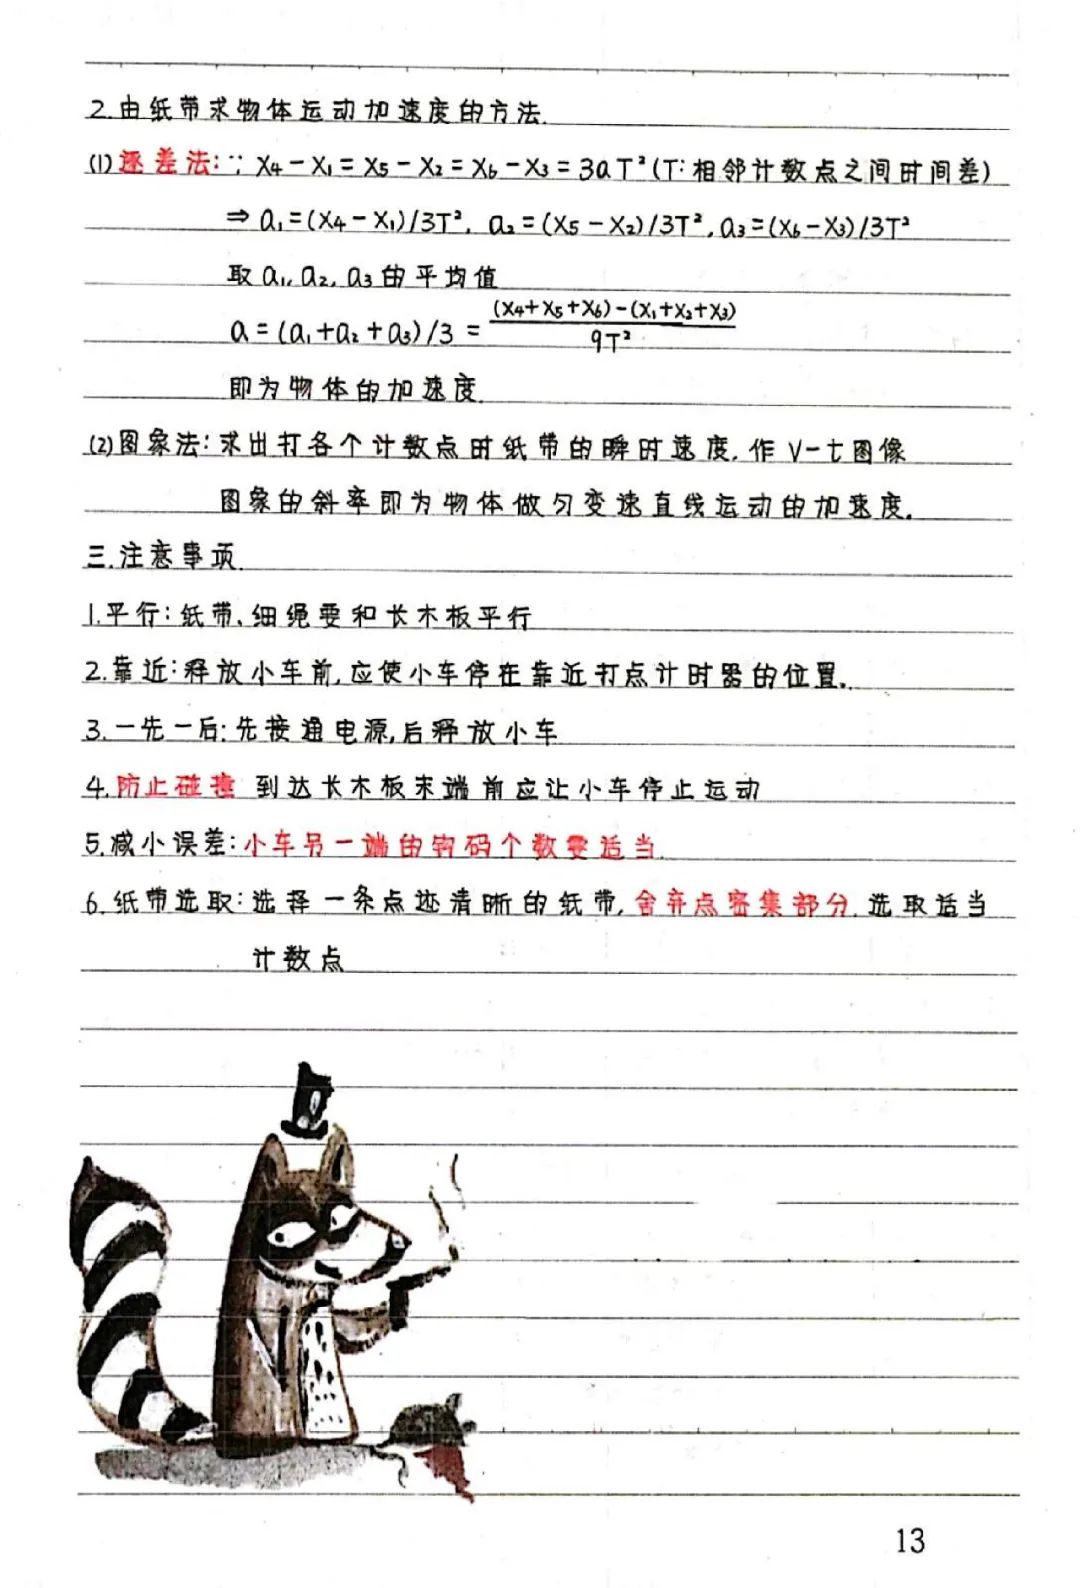 2.由纸带求物体运动加速度的方法.
(1)逐差法:∵ X₄-X₁=X₅-X₂=X₆-X₃=3aT²(T:相邻计数点之间时间差)
⇒ a₁=(X₄-X₁)/3T², a₂=(X₅-X₂)/3T², a₃=(X₆-X₃)/3T²
取a₁, a₂, a₃的平均值
a=(a₁+a₂+a₃)/3=(X₄+X₅+X₆)-(X₁+X₂+X₃)/9T²
即为物体的加速度.
(2)图象法:求出打各个计数点时纸带的瞬时速度.作V-t图像
图象的斜率即为物体做匀变速直线运动的加速度.
三.注意事项.
1.平行:纸带、细绳要和长木板平行
2.靠近:释放小车前,应使小车停在靠近打点计时器的位置.
3.一先一后:先接通电源,后释放小车
4.防止碰撞 到达长木板末端前应让小车停止运动
5.减小误差:小车另一端的钩码个数要适当.
6.纸带选取:选择一条点迹清晰的纸带,舍弃点密集部分.选取适当
计数点
13